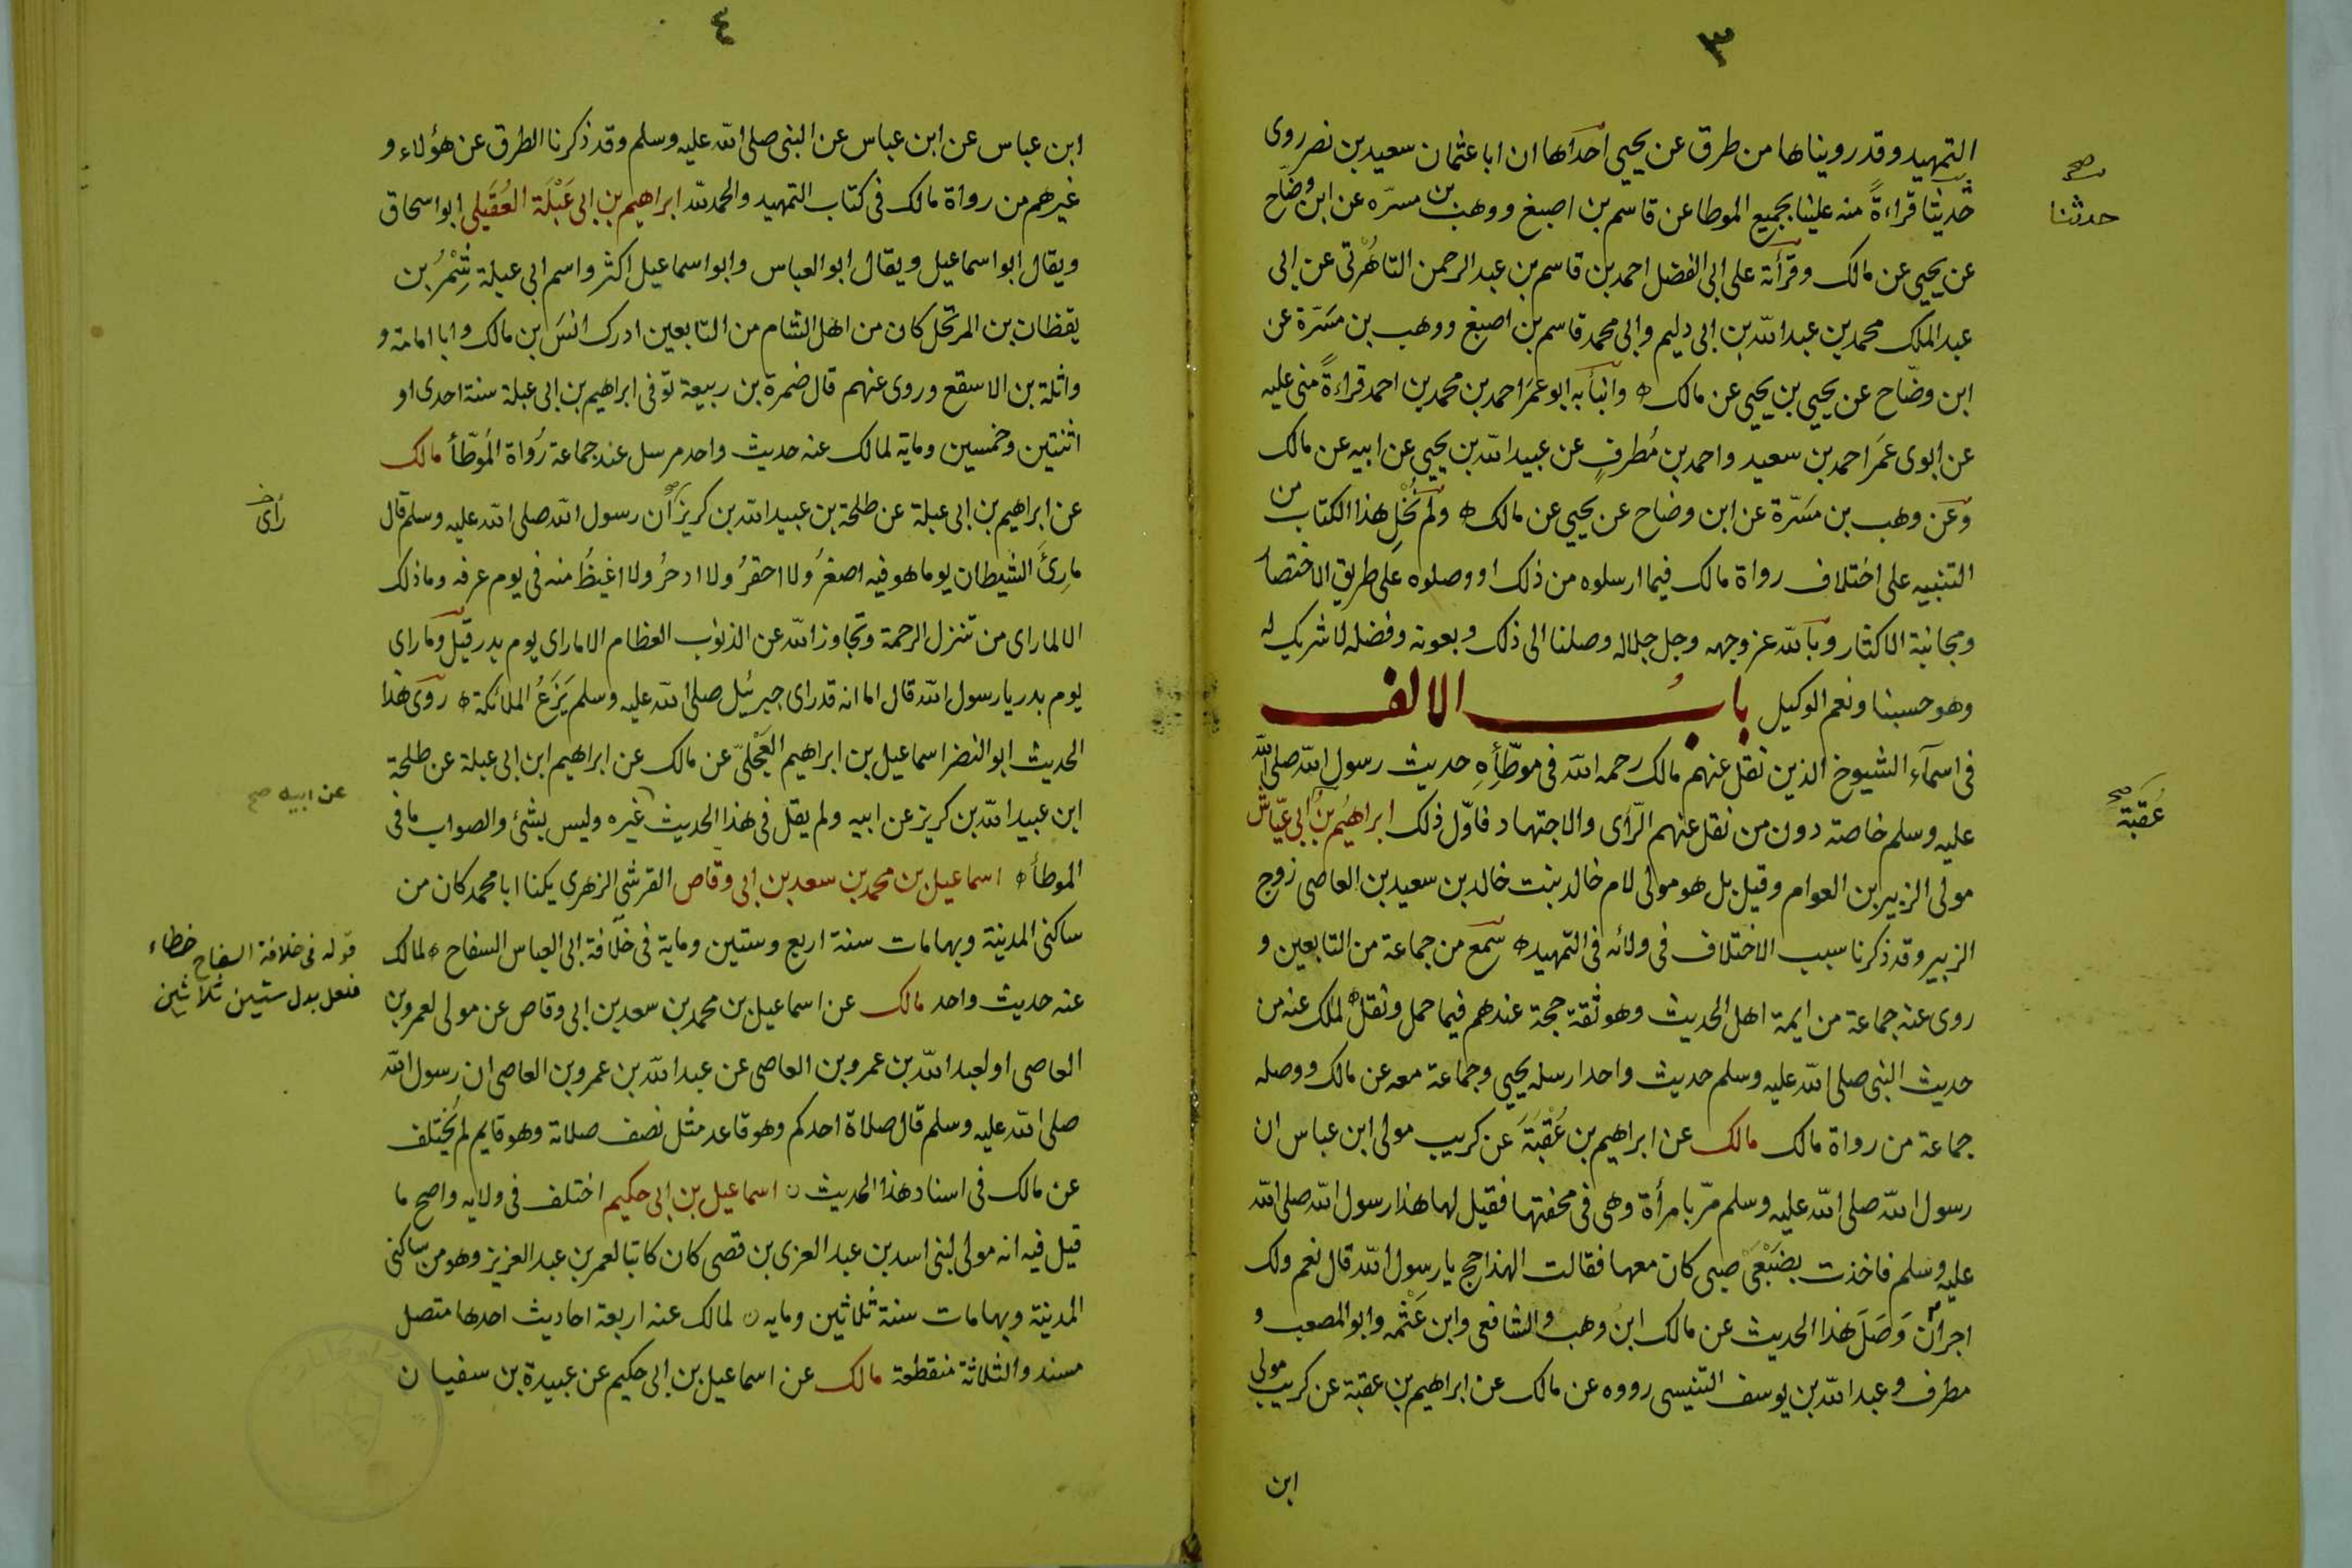 ٣
التمهيد وقد رويناها من طرق عن يحيى احداها ان ابا عثمان سعيد بن نصر روى
حدثنا قراءةً منه علينا بجميع الموطا عن قاسم بن اصبغ ووهب بن مسرّه عن ابن وضّاح
صح
حدثنا
عن يحيى عن مالك وقرأته على ابى الفضل احمد بن قاسم بن عبد الرحمن التاهرتى عن ابى
عبد الملك محمد بن عبد الله بن ابى دليم وابى محمد قاسم بن اصبغ ووهب بن مسَرّة عن
ابن وضّاح عن يحيى بن يحيى عن مالك ه وانبأ به ابو عمَر احمد بن محمد بن احمد قراءةً منى عليه
عن ابوى عمَر احمد بن سعيد واحمد بن مُطرفٍ عن عبيد الله بن يحيى عن ابيه عن مالك
وعن وهب بن مَسَرّة عن ابن وضاح عن يحيى عن مالك ه ولم نُخْلِ هذا الكتاب من
التنبيه على اختلاف رواة مالك فيما ارسلوه من ذلك او وصلوه على طريق الاختصار
ومجانبة الاكثار وبالله عز وجهه وجل جلاله وصلنا الى ذلك وبعونه وفضله لا شريك له
وهو حسبنا ونعم الوكيل بابُ الالف
فى اسمآء الشيوخ الذين نقل عنهم مالك رحمه الله فى موطّأِهِ حديث رسول الله صلى الله
عليه وسلم خاصة دون من نقل عنهم الرّأى والاجتهاد فاوّل ذلك ابراهيمُ بنُ ابى عيّاش
عُقَبَة صح
مولى الزبير بن العوام وقيل بل هو مولى لام خالد بنت خالد بن سعيد بن العاصى زوج
الزبير وقد ذكرنا سبب الاختلاف فى ولائه فى التمهيد ه سمع من جماعة من التابعين و
روى عنه جماعة من ايمة اهل الحديث وهو ثقة حجة عندهم فيما حمل ونقل ه لملك عنه من
حديث النبى صلى الله عليه وسلم حديث واحد ارسله يحيى وجماعة معه عن مالك ووصله
جماعة من رواة مالك مالك عن ابراهيم بن عُقْبَةَ عن كريب مولى ابن عباس ان
رسول الله صلى الله عليه وسلم مرّ بامرأة وهى فى محفتها فقيل لها هذا رسول الله صلى الله
عليه وسلم فاخذت بضَبْعَىْ صبى كان معها فقالت الهذا حج يا رسول الله قال نعم ولك
اجر ان وَصَلَ هذا الحديث عن مالك ابن وهب والشافعى وابن عَثْمه وابو المصعب و
مطرف وعبد الله بن يوسف التنيسى رووه عن مالك عن ابراهيم بن عقبة عن كريب مولى
ابن
٤
ابن عباس عن ابن عباس عن النبى صلى الله عليه وسلم وقد ذكرنا الطرق عن هؤلاء و
غيرهم من رواة مالك فى كتاب التمهيد والحمد لله ابراهيم بن ابى عَبْلَة العُقَيلى ابو اسحاق
ويقال ابو اسماعيل ويقال ابو العباس وابو اسماعيل اكثر واسم ابى عبلة شِمْرُ بن
يقظان بن المرتحل كان من اهل الشام من التابعين ادرك انسَ بن مالك وابا امامة و
واثلة بن الاسقع وروى عنهم قال ضمرة بن ربيعة توفى ابراهيم بن ابى عبلة سنة احدى او
اثنتين وخمسين وماية لمالك عنه حديث واحد مرسل عند جماعة رُواة المُوطّأ مالك
عن ابراهيم بن ابى عبلة عن طلحة بن عبيد الله بن كريز أن رسول الله صلى الله عليه وسلم قال
رأى
مارِئَ الشيطان يوما هو فيه اصغرُ ولا احقرُ ولا ادحرُ ولا اغيظُ منه فى يوم عرفه وما ذلك
الا لما راى من تنزل الرحمة وتجاوز الله عن الذنوب العظام الا ماراى يوم بدر قيل وما راى
يوم بدر يا رسول الله قال اما انه قد راى جبرئيل صلى الله عليه وسلم يَزَعُ الملائكة ه روى هذا
الحديث ابو النضر اسماعيل بن ابراهيم العَجْلىّ عن مالك عن ابراهيم ابن ابى عبلة عن طلحة
عن ابيه صح
ابن عبيد الله بن كريز عن ابيه ولم يقل فى هذا الحديث غيره وليس بشئ والصواب ما فى
الموطأ ه اسماعيل بن محمد بن سعد بن ابى وقاص القرشى الزهرى يكنا ابا محمد كان من
ساكنى المدينة وبها مات سنة اربع وستين وماية فى خلافة ابى العباس السفاح ه لمالك
قوله فى خلافة السفاح خطاء
فلعل بدل ستين ثلاثين
عنه حديث واحد مالك عن اسماعيل بن محمد بن سعد بن ابى وقاص عن مولى لعمرو بن
العاصى او لعبد الله بن عمرو بن العاصى عن عبد الله بن عمرو بن العاصى ان رسول الله
صلى الله عليه وسلم قال صلاة احدكم وهو قاعد مثل نصف صلاته وهو قايم لم يُختلف
عن مالك فى اسناد هذا الحديث ه اسماعيل بن ابى حكيم اختلف فى ولايه واصح ما
قيل فيه انه مولى لبنى اسد بن عبد العزى بن قصى كان كاتبا لعمر بن عبد العزيز وهو من ساكنى
المدينة وبها مات سنة ثلاثين ومايه ه لمالك عنه اربعة احاديث احدها متصل
مسند والثلاثة منقطعة مالك عن اسماعيل بن ابى حكيم عن عبيدة بن سفيان